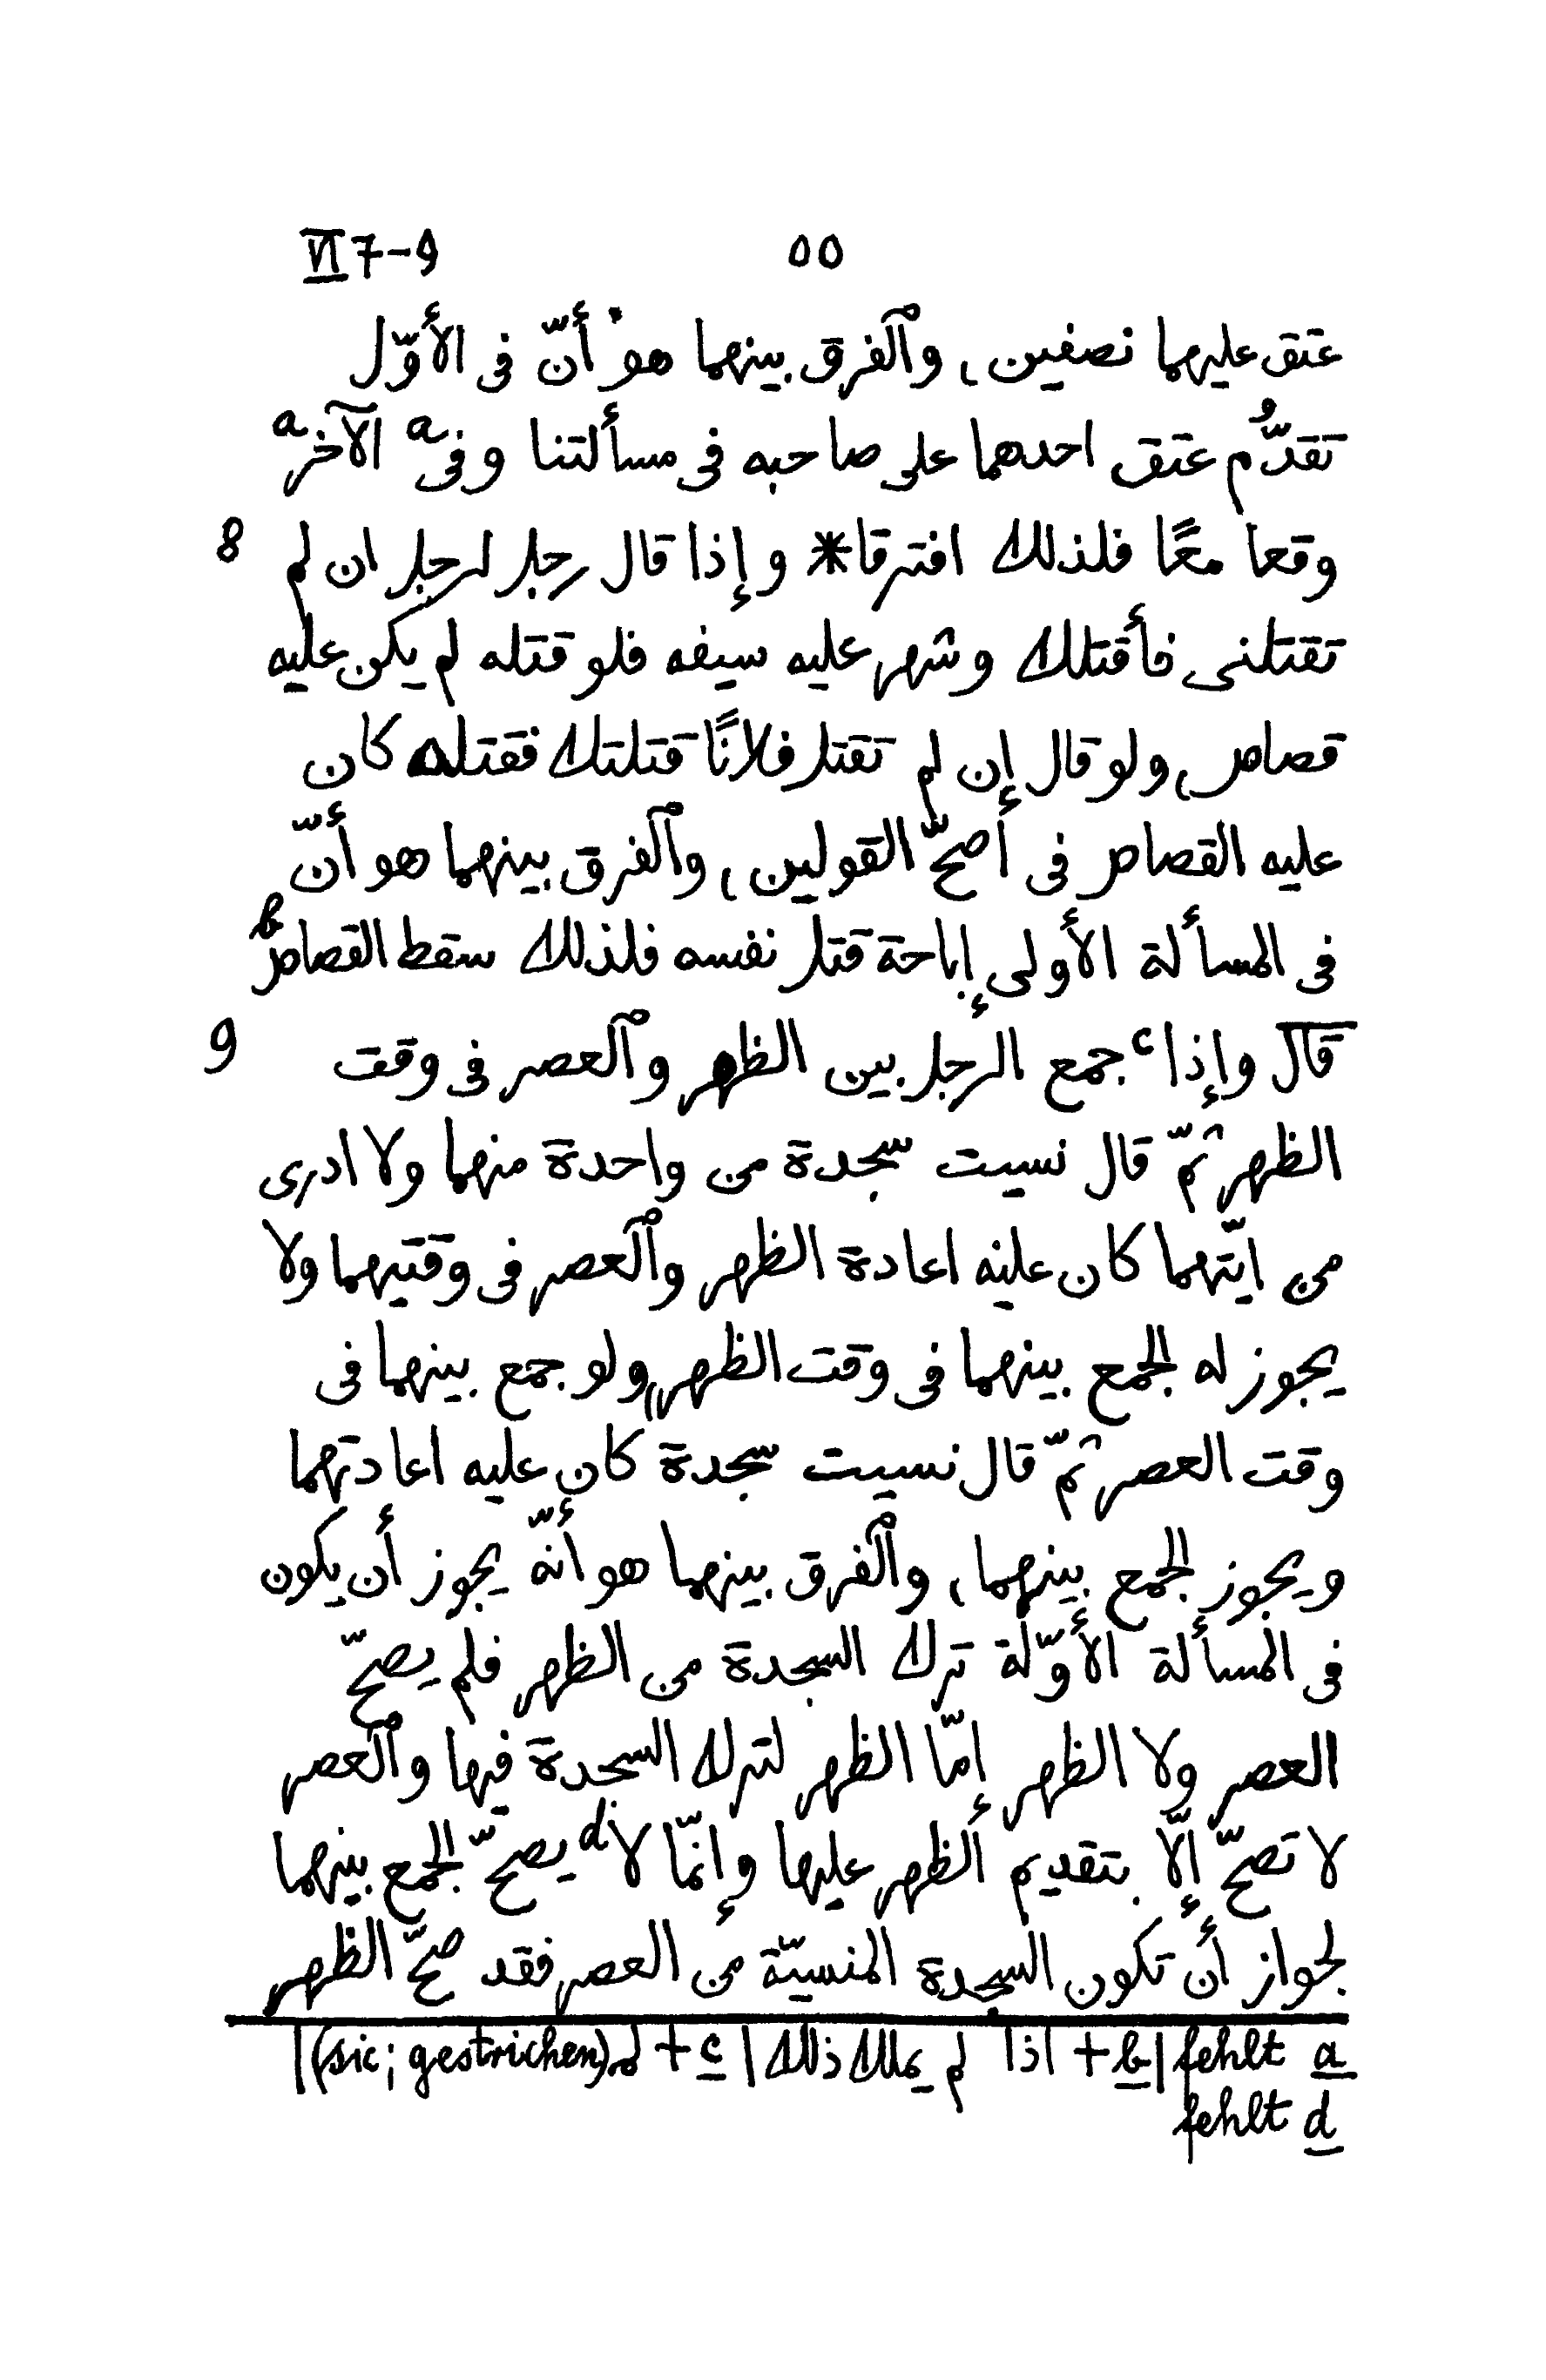 VI 7-9 ٥٥
عتق عليهما نصفين، وٱلفرق بينهما هو أنّ فى الأوّل
تقدُّم عتق احدهما على صاحبه فى مسألتنا وفى a الآخر a
وقعا معًا فلذلك افترقا * وإذا قال رجل لرجل ان لم 8
تقتلنى فأقتلك وشهر عليه سيفه فلو قتله لم يكن عليه
قصاص، ولو قال إن لم تقتل فلانًا قتلتك فقتله كان
عليه القصاص فى أصحّ القولين، وٱلفرق بينهما هو أنّ
فى المسألة الأولى إباحة قتل نفسه فلذلك سقط القصاص b
قال وإذا c جمع الرجل بين الظهر وٱلعصر فى وقت 9
الظهر ثمّ قال نسيت سجدة من واحدة منهما ولا ادرى
من ايّتهما كان عليه اعادة الظهر وٱلعصر فى وقتيهما ولا
يجوز له الجمع بينهما فى وقت الظهر، ولو جمع بينهما فى
وقت العصر ثمّ قال نسيت سجدة كان عليه اعادتهما
ويجوز الجمع بينهما، وٱلفرق بينهما هو أنّه يجوز أن يكون
فى المسألة الأوّلة ترك السجدة من الظهر فلم يصحّ
العصر ولا الظهر إمّا الظهر لترك السجدة فيها وٱلعصر
لا تصحّ إلّا بتقديم الظهر عليها وإنّما لا d يصحّ الجمع بينهما
لجواز أن تكون السجدة المنسيّة من العصر فقد صحّ الظهر
a fehlt | b + اذا لم يملك ذلك | c + لم (sic; gestrichen) |
d fehlt